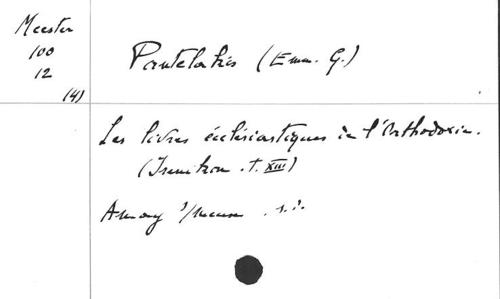 Meester
100
12
(4)
Pantelakis (Emm. G.)
Les livres ecclésiastiques de l'Orthodoxie.
(Irenikon. t. XIII)
Amay s/Meuse. s.d.